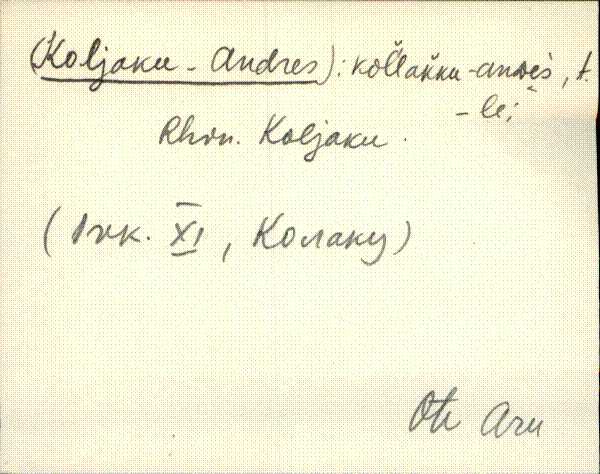 (Koljaku - Andres): koĺĺakku-andŕès, t.
- le;
Rhvn. Koljaku.
(Ivk. XI, Колаку)
Ote Aru